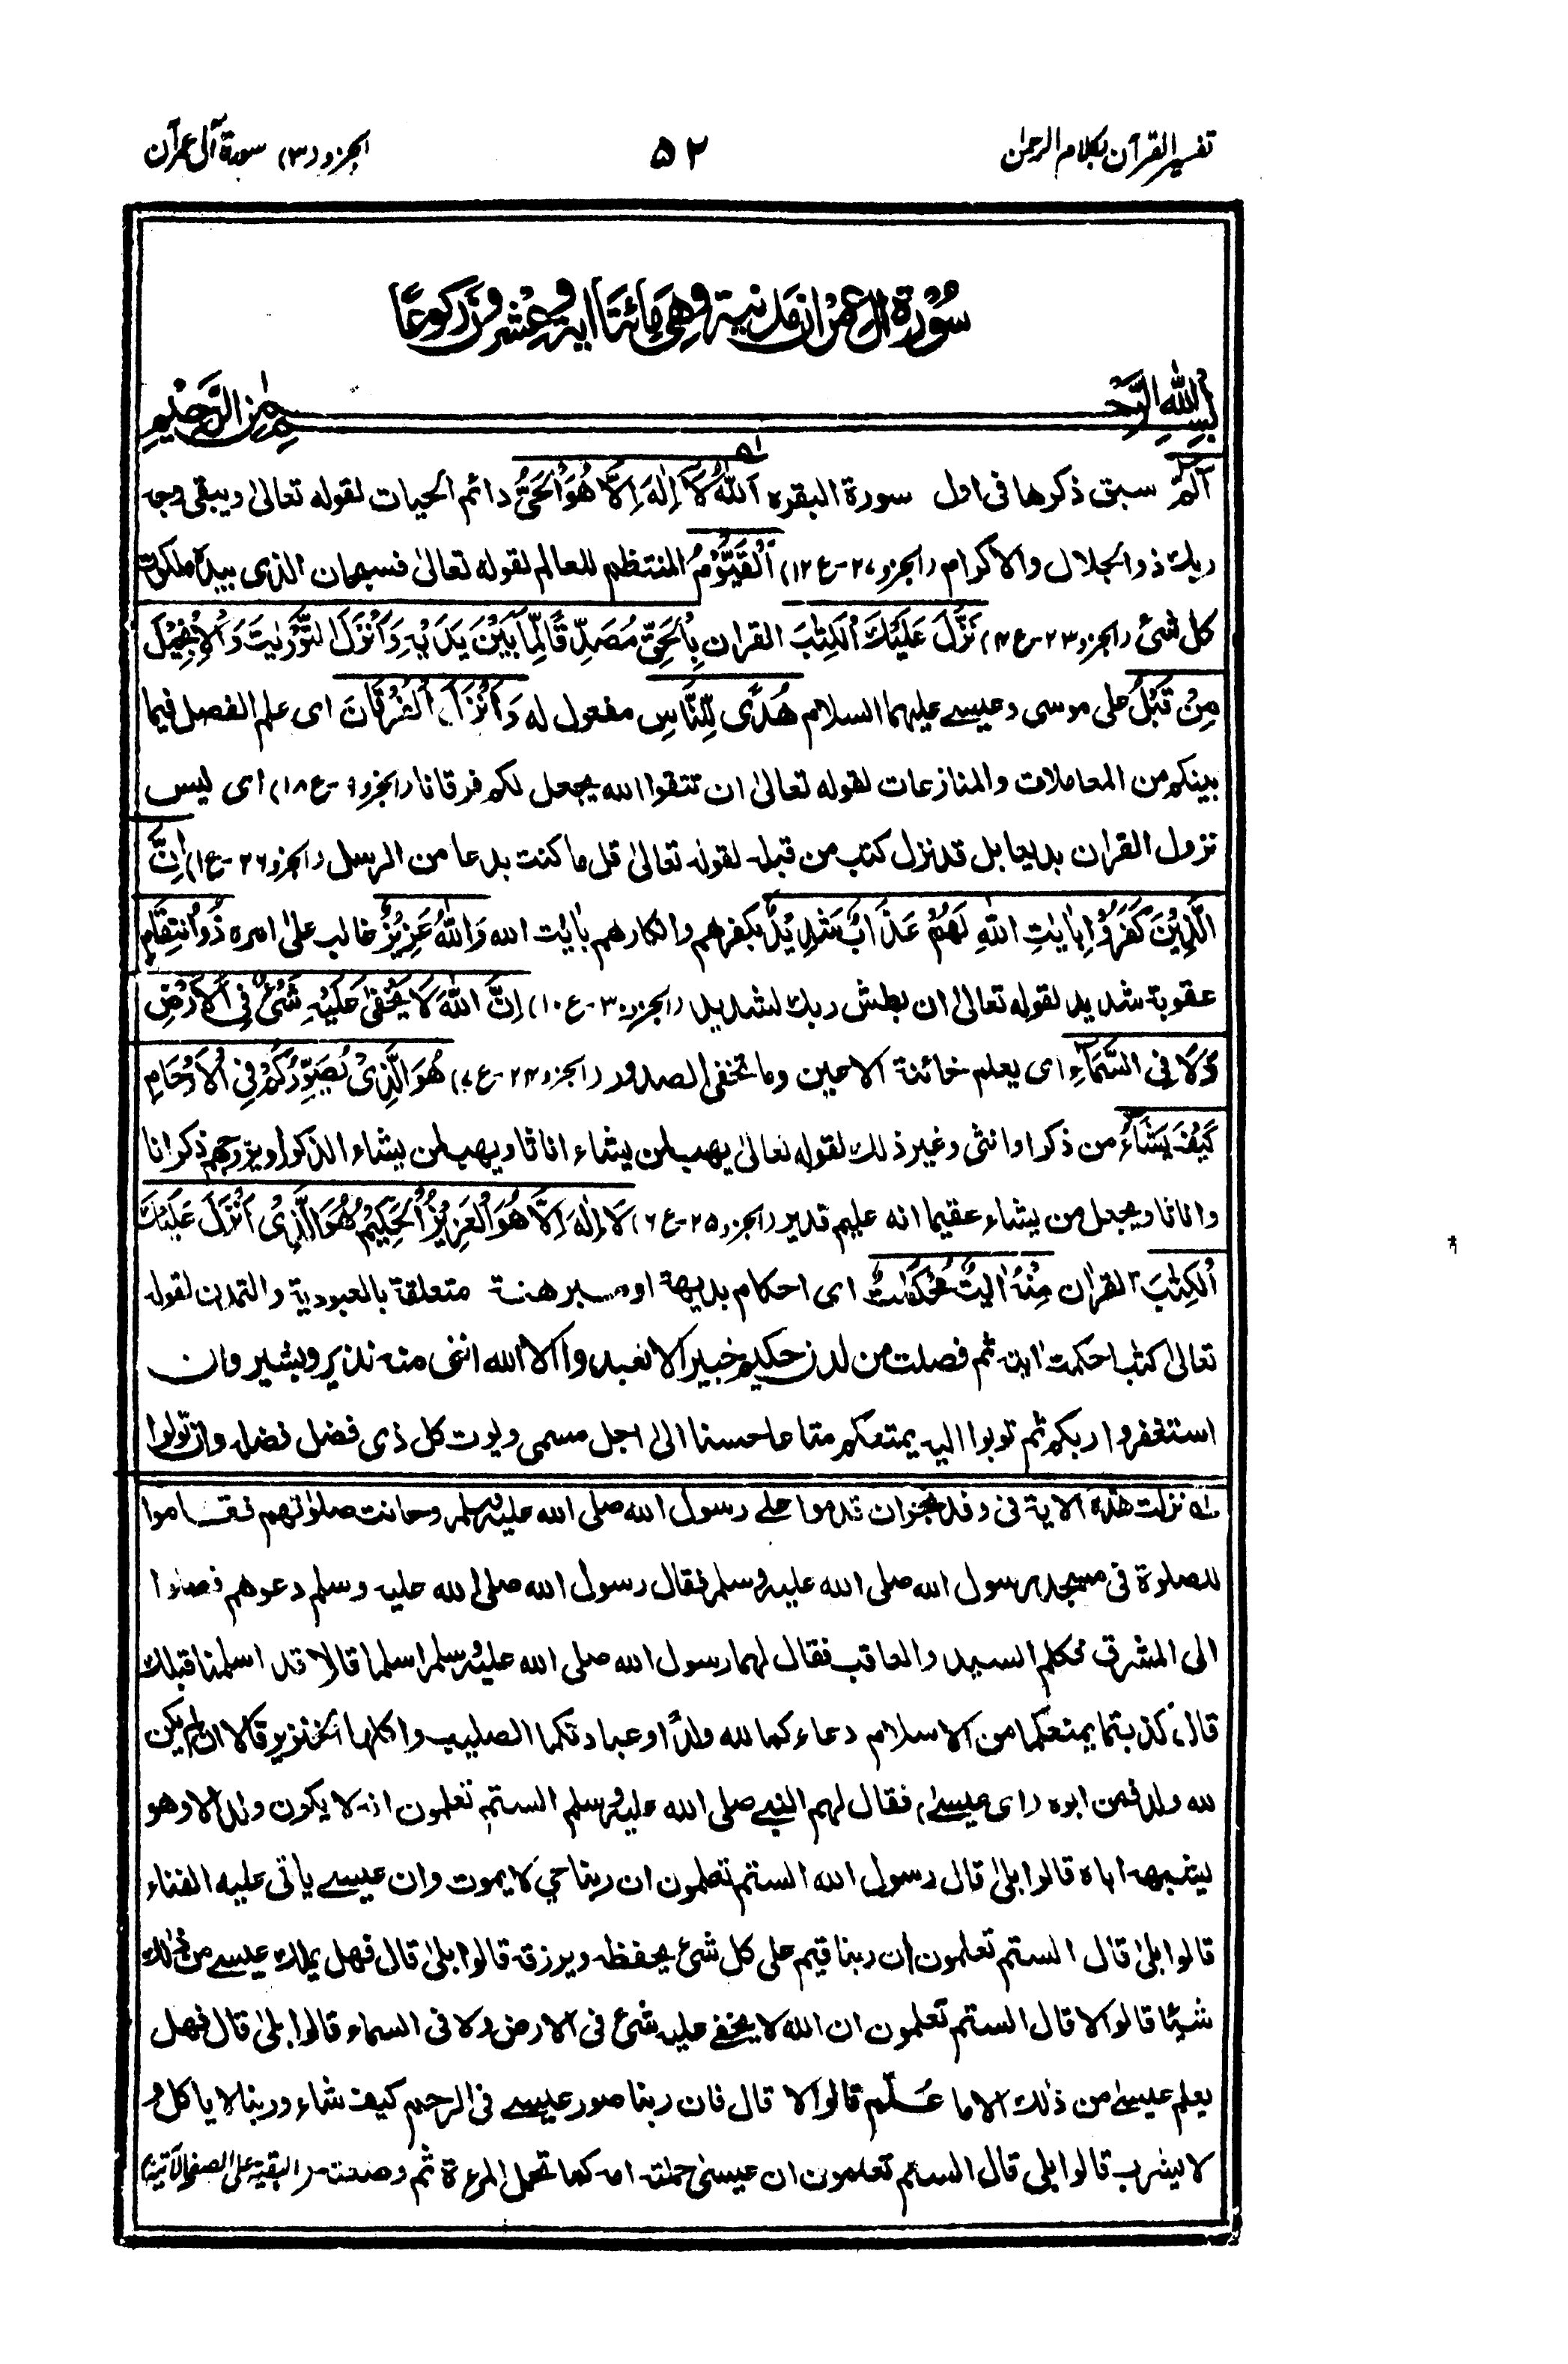 تفسير القرآن بكلام الرحمن
۵۲
الجزو (۳) سورة آل عمران
سُوْرَةُ اٰلِ عِمْرٰنَ مَدَنِيَّةٌ وَّهِيَ مِائَتَا اٰيَةٍ وَّعِشْرُوْنَ رَكُوْعًا
بِسْمِ اللّٰهِ الرَّحْمٰنِ الرَّحِيْمِ
الٓمّٓ سبق ذكرها فى اول سورة البقره اَللّٰهُ لَآ اِلٰهَ اِلَّا هُوَ الْحَيُّ دائم الحيات لقوله تعالىٰ ويبقى وجه
ربك ذو الجلال والاكرام (الجزو ۲۷-ع ۱۲) اَلْقَيُّوْمُ المنتظم للعالم لقوله تعالىٰ فسبحان الذى بيده ملكوت
كل شئ (الجزو ۲۳-ع ۴) نَزَّلَ عَلَيْكَ الْكِتٰبَ القران بِالْحَقِّ مُصَدِّقًا لِّمَا بَيْنَ يَدَيْهِ وَاَنْزَلَ التَّوْرٰىةَ وَالْاِنْجِيْلَ
مِنْ قَبْلُ على موسى وعيسے عليهما السلام هُدًى لِّلنَّاسِ مفعول له وَاَنْزَلَ الْفُرْقَانَ اى علم الفصل فيما
بينكم من المعاملات والمنازعات لقوله تعالىٰ ان تتقوا الله يجعل لكم فرقانا (الجزو ۹-ع ۱۸) اى ليس
نزول القران بديعا بل قد نزل كتب من قبله لقوله تعالىٰ قل ما كنت بدعا من الرسل (الجزو ۲۶-ع ۱) اِنَّ
الَّذِيْنَ كَفَرُوْا بِاٰيٰتِ اللّٰهِ لَهُمْ عَذَابٌ شَدِيْدٌ بكفرهم وانكارهم باٰيٰت الله وَاللّٰهُ عَزِيْزٌ غالب علىٰ امره ذُو انْتِقَامٍ
عقوبة شديد لقوله تعالىٰ ان بطش ربك لشديد (الجزو ۳۰-ع ۱۰) اِنَّ اللّٰهَ لَا يَخْفٰى عَلَيْهِ شَيْءٌ فِي الْاَرْضِ
وَلَا فِي السَّمَآءِ اى يعلم خائنة الاعين وما تخفى الصدور (الجزو ۲۴-ع ۷) هُوَ الَّذِيْ يُصَوِّرُكُمْ فِي الْاَرْحَامِ
كَيْفَ يَشَآءُ من ذكر او انثى وغير ذلك لقوله تعالىٰ يهب لمن يشاء اناثا ويهب لمن يشاء الذكور او يزوجهم ذكرانا
واناثا ويجعل من يشاء عقيما انه عليم قدير (الجزو ۲۵-ع ۶) لَآ اِلٰهَ اِلَّا هُوَ الْعَزِيْزُ الْحَكِيْمُ هُوَ الَّذِيْ اَنْزَلَ عَلَيْكَ
الْكِتٰبَ القران مِنْهُ اٰيٰتٌ مُّحْكَمٰتٌ اى احكام بديهة او مبرهنة متعلقة بالعبودية والتمدن لقوله
تعالىٰ كتٰب احكمت اٰيٰته ثم فصلت من لدن حكيم خبير الا تعبدوا الا الله اننى منه نذير وبشير وان
استغفروا ربكم ثم توبوا اليه يمتعكم متاعا حسنا الىٰ اجل مسمى ويوت كل ذى فضل فضله وان تولوا
نزلت هذه الاية فى وفد نجران قدموا علے رسول الله صلى الله عليه وسلم وحانت صلوٰتهم فقاموا
للصلوة فى مسجد رسول الله صلى الله عليه وسلم فقال رسول الله صلى الله عليه وسلم دعوهم فصلوا
الى المشرق فكلم السيد والعاقب فقال لهما رسول الله صلى الله عليه وسلم اسلما قالا قد اسلمنا قبلك
قال كذبتما يمنعكما من الاسلام دعاءكما لله ولدًا وعبادتكما الصليب واكلكما الخنزير قالا ان لم يكن
لله ولد فمن ابوه (اى عيسےٰ) فقال لهم النبے صلى الله عليه وسلم الستم تعلمون انه لا يكون ولد الا وهو
يشبه اباه قالوا بلىٰ قال رسول الله الستم تعلمون ان ربنا حي لا يموت وان عيسے ياتى عليه الفناء
قالوا بلىٰ قال الستم تعلمون ان ربنا قيم على كل شئ يحفظه ويرزقه قالوا بلىٰ قال فهل يملك عيسے من ذلك
شيئا قالوا لا قال الستم تعلمون ان الله لا يخفے عليه شئ فى الارض ولا فى السماء قالوا بلىٰ قال فهل
يعلم عيسىٰ من ذٰلك الا ما عُلّم قالوا لا قال فان ربنا صور عيسے فى الرحم كيف شاء وربنا لا ياكل و
لا يشرب قالوا بلى قال الستم تعلمون ان عيسىٰ حملته امه كما تحمل المرءة ثم وضعته (البقية على الصفحة الآتية)